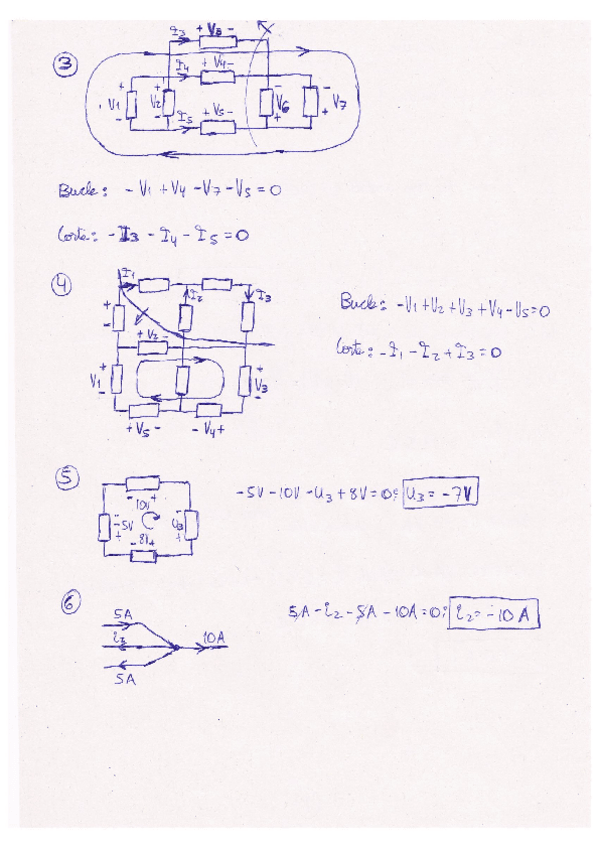 ③
I3 + V3 -
I4 + V4 -
+ V1 -
+ V2 -
I5 + V5 -
- V6 +
- V7 +
Bucle: - V1 + V4 - V7 - V5 = 0
Corte: - I3 - I4 - I5 = 0
④
I1
I2
I3
+ -
+ V2 -
V1 + -
+ V3 -
+ V5 -
- V4 +
Bucle: - V1 + V2 + V3 + V4 - V5 = 0
Corte: - I1 - I2 + I3 = 0
⑤
- 10V +
- 5V +
U3 - +
- 8V +
-5V - 10V - U3 + 8V = 0; U3 = -7V
⑥
5A
10A
5A
5A - i2 - 5A - 10A = 0; i2 = -10 A